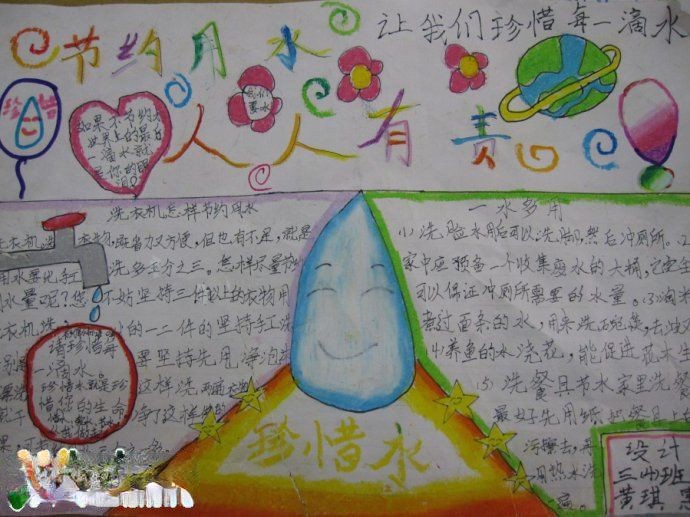 让我们珍惜每一滴水
节约用水
人人有责
珍惜
我们要水
如果不节约水
世界上的最后
一滴水就
是你的眼
泪
洗衣机怎样节约用水
衣机洗衣物,既省力又方便,但也有不足,就是
用水要比手工洗多三分之二。怎样尽量
水量呢?您不妨坚持三件以上的衣物用
衣机洗
的一二件的坚持手工洗
要坚持先甩净泡
这样洗两遍衣物
请珍惜每
一滴水。
珍惜水就是珍
惜你的生命
一水多用
(1)洗脸水用后可以洗脚,然后冲厕所。(2)
家中应预备一个收集废水的大桶,它完全
可以保证冲厕所需要的水量。(3)淘米
煮过面条的水,用来洗碗筷,去
(4)养鱼的水浇花,能促进花木生
(5)洗餐具节水家里洗餐
最好先用纸把餐具上
污擦去,再
用热水洗
遍。
珍惜水
设计
三(4)班
黄琪